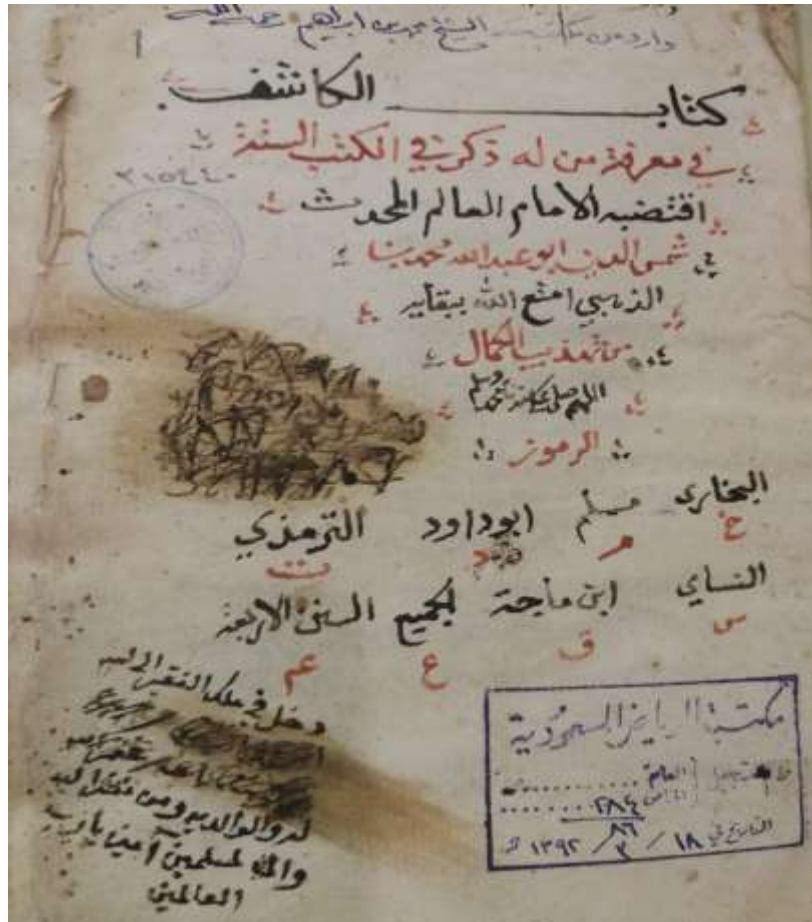 وارد من مكتبة الشيخ محمد بن ابراهيم رحمه الله
كتاب الكاشف
في معرفة من له ذكر في الكتب الستة
٣١٥٤٤٠
اقتضبه الامام العالم المحدث
شمس الدين ابو عبد الله محمد بن
الذهبي امتع الله ببقايه
من تهذيب الكمال
اللهم صل على محمد وسلم
الرموز
البخاري مسلم ابو داود الترمذي
خ م د ت
النساي ابن ماجة لجميع السنن الاربعة
س ق ع عم
دخل في ملك الفقير الى الله
له ولوالديه ومن
والمسلمين آمين يا رب
العالمين
مكتبة الرياض السعودية
العام
٢٨٤
٨٦
التاريخ في ١٨ / ٣ / ١٣٩٢ هـ